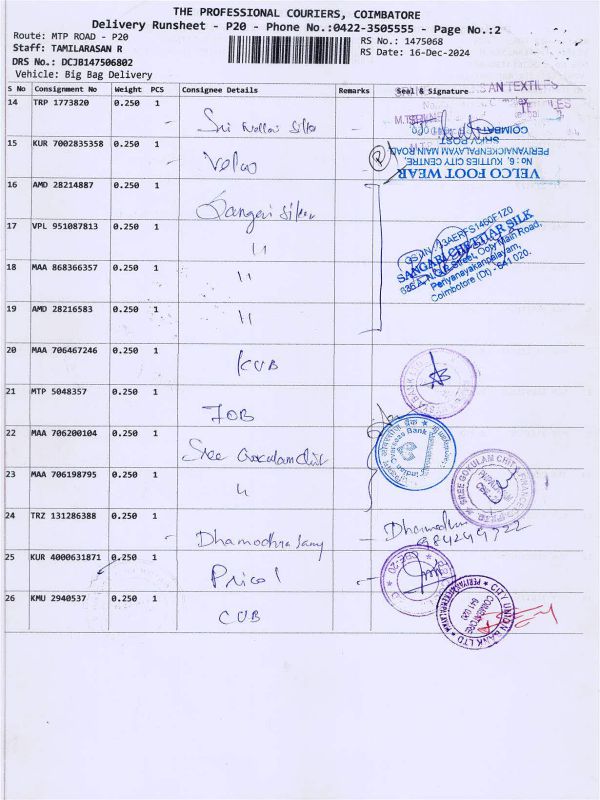 THE PROFESSIONAL COURIERS, COIMBATORE
Delivery Runsheet - P20 - Phone No.:0422-3505555 - Page No.:2
Route: MTP ROAD - P20
RS No.: 1475068
Staff: TAMILARASAN R
RS Date: 16-Dec-2024
DRS No.: DCJB147506802
Vehicle: Big Bag Delivery
S No Consignment No Weight PCS Consignee Details Remarks Seal & Signature
14 TRP 1773820 0.250 1
15 KUR 7002835358 0.250 1
VELCO FOOT WEAR
No : 6, KUTTIES CITY CENTRE,
PERIYANAICKENPALAYAM MAIN ROAD
16 AMD 28214887 0.250 1
17 VPL 951087813 0.250 1 11
SANGARI CHETTIAR SILK
Ooty Main Road,
Periyanayakanpalayam,
Coimbotore (Dt) - 641 020.
18 MAA 868366357 0.250 1 11
19 AMD 28216583 0.250 1 11
20 MAA 706467246 0.250 1 KVB
21 MTP 5048357 0.250 1 IOB
Indian Overseas Bank
22 MAA 706200104 0.250 1 Sree Gokulam Chit
23 MAA 706198795 0.250 1
SREE GOKULAM CHIT
24 TRZ 131286388 0.250 1 Dhamodhra Samy
25 KUR 4000631871 0.250 1 Pricol
26 KMU 2940537 0.250 1 CUB
CITY UNION BANK LTD
COIMBATORE
641 020